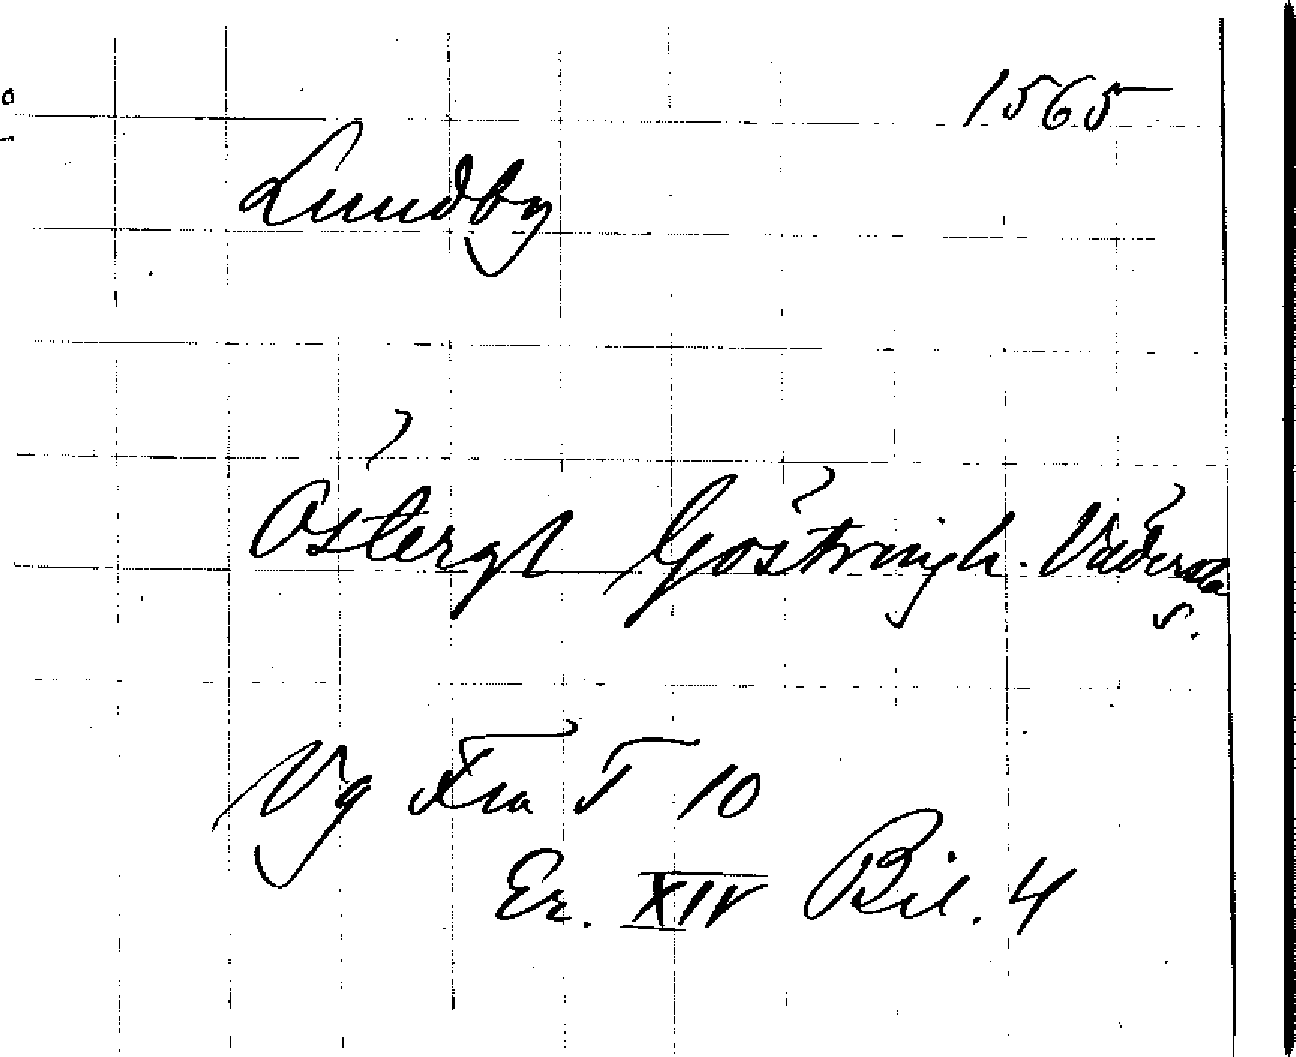 1565
Lundby
Östergl Göstringh. Vädersta
s.
Vg Fra T 10
Er. XIV Bil. 4